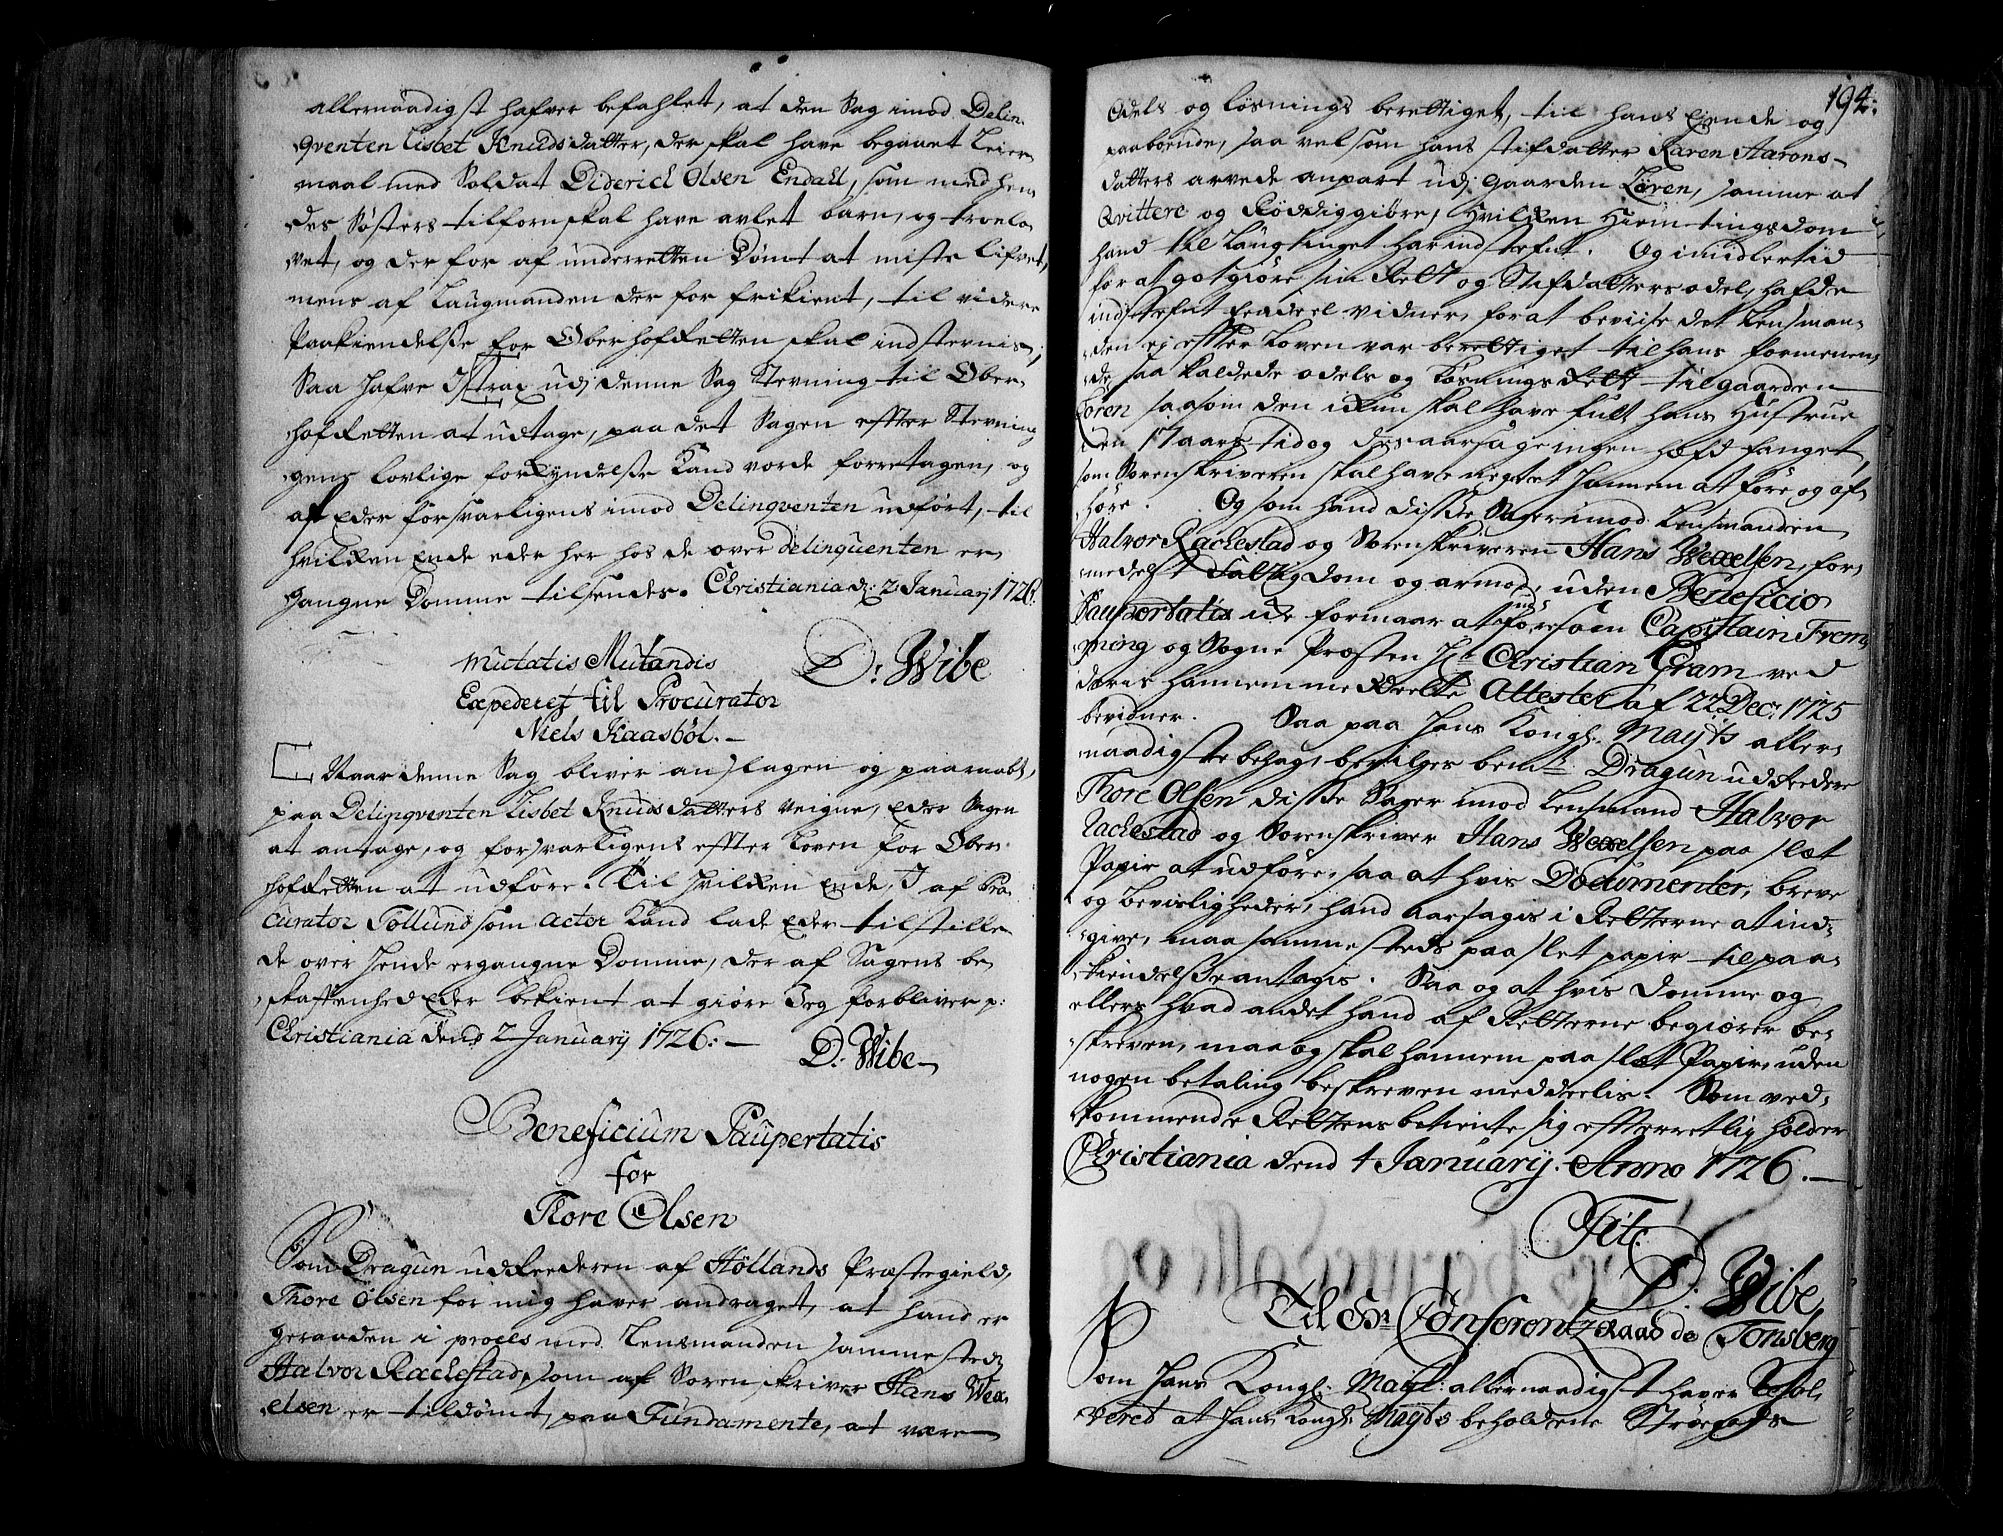 allernaadigst hafver befahlet, at den Sag imod Delin-
qventen Lisbet Knuds datter, der skal have begaaet Leier-
maal med Soldat Diderich Olsen Endall, som med hen-
des Søster tilforn skal have avlet barn, og troelo-
vet, og der for af underretten Dømt at miste Lifvet,
mens af Laugmanden der for frikient, til videre
Paakiendelse for Oberhofretten skal indstevnis;
Saa hafve I strax udj denne Sag Stevning til Ober-
hofretten at udtage, paa det Sagen effter Stevnin-
gens lovlige forkyndelse kand vorde forretagen, og
af Eder forsvarligens imod Delinqventen udført, til
hvilken Ende eder her hos de over Delinquenten er-
gangne Domme tilsendes. Christiania d: 2 January 1726.
D: Wibe
Mutatis Mutandis
Expederet til Procurator
Niels Kaasbøl.
Naar denne Sag bliver anslagen og paaraabt,
paa Delinqventen Lisbet Knuds datters veigne, Eder Sagen
at antage, og forsvarligens effter Loven for Ober-
hofretten at udføre. Til hvilken Ende, I af Pro-
curator Tollund som Actor kand lade Eder tilstille
de over hende ergangne Domme, der af Sagens be-
skaffenhed Eder bekient at giøre Jeg forbliver p:
Christiania dend 2 January 1726. —
D. Wibe
Beneficium Paupertatis
for
Thore Olsen
Som Dragun udreederen af Høllands Præstegield,
Thore Olsen for mig haver andraget, at hand er
geraaden i proces med Lensmanden sammesteds
Halvor Rachestad, som af Sorenskriver Hans Wex-
elsen er tildømt, paa Fundamente, at være
194:
Odels og løsnings berettiget, til hans Eiende og
paaboende, saa vel som hans Stifdatter Karen Aarons-
datters arvede anpart udj gaarden Lôren, samme at
Qvittere og Røddiggiøre, hvilken Hiemtingsdom
hand til Laugtinget har indstefnt. Og imidlertid
for at gotgiøre sin Rett og Stifdatters odel, hafde
indstefnt feadeel vidner, for at beviise det Lensman-
den ej effter Loven var berettiget til hans formenen-
de saa kaldede odels og Løsnings Rett til gaarden
Lôren saasom den ikkun skal have fult hans Hustrue
en 17 aars tid og des aarsage ingen hæfd fanget,
som Sorenskriveren skal have negtet hannem at føre og af-
høre. Og som hand disse Sager imod Lensmanden
Halvor Rachestad og Sorenskriveren Hans Wexelsen, for-
medelst Fattigdom og armod, uden Beneficio
Paupertatis icke formaar at udføre som Capitain Frem-
ming og Sogne Præsten Hr. Christian Gram ved
deris hannem meddeelte Attester af 22 Decr. 1725
bevidner. Saa paa Hans Kongl. Mayts aller-
naadigste behag, bevilges bemte. Dragun udreeder
Thore Olsen disse Sager imod Lensmand Halvor
Rachestad og Sorenskriver Hans Wexelsen paa slæt
Papir at udføre, saa at hvis Documenter, breve
og bevisligheder, hand aarsagis i Retterne at ind-
give, maa sammesteds paa slet papir til paa-
kiendelse antagis. Saa og at hvis Domme og
ellers hvad andet hand af Retterne begiærer be-
skreven, maa og skal hannem paa slæt Papir, uden
nogen betaling beskreven meddeelis. Som ved-
kommende Rettens betiente sig effterretlig holder
Christiania dend 4 January. Anno 1726. —
Tit:
D. Wibe
Til Hr. Conferentz Raad de Tonsberg
Som Hans Kongl: Mayt: allernaadigst haver Resol-
veret at Hans Kongl: Mayts beholdene Strøegods